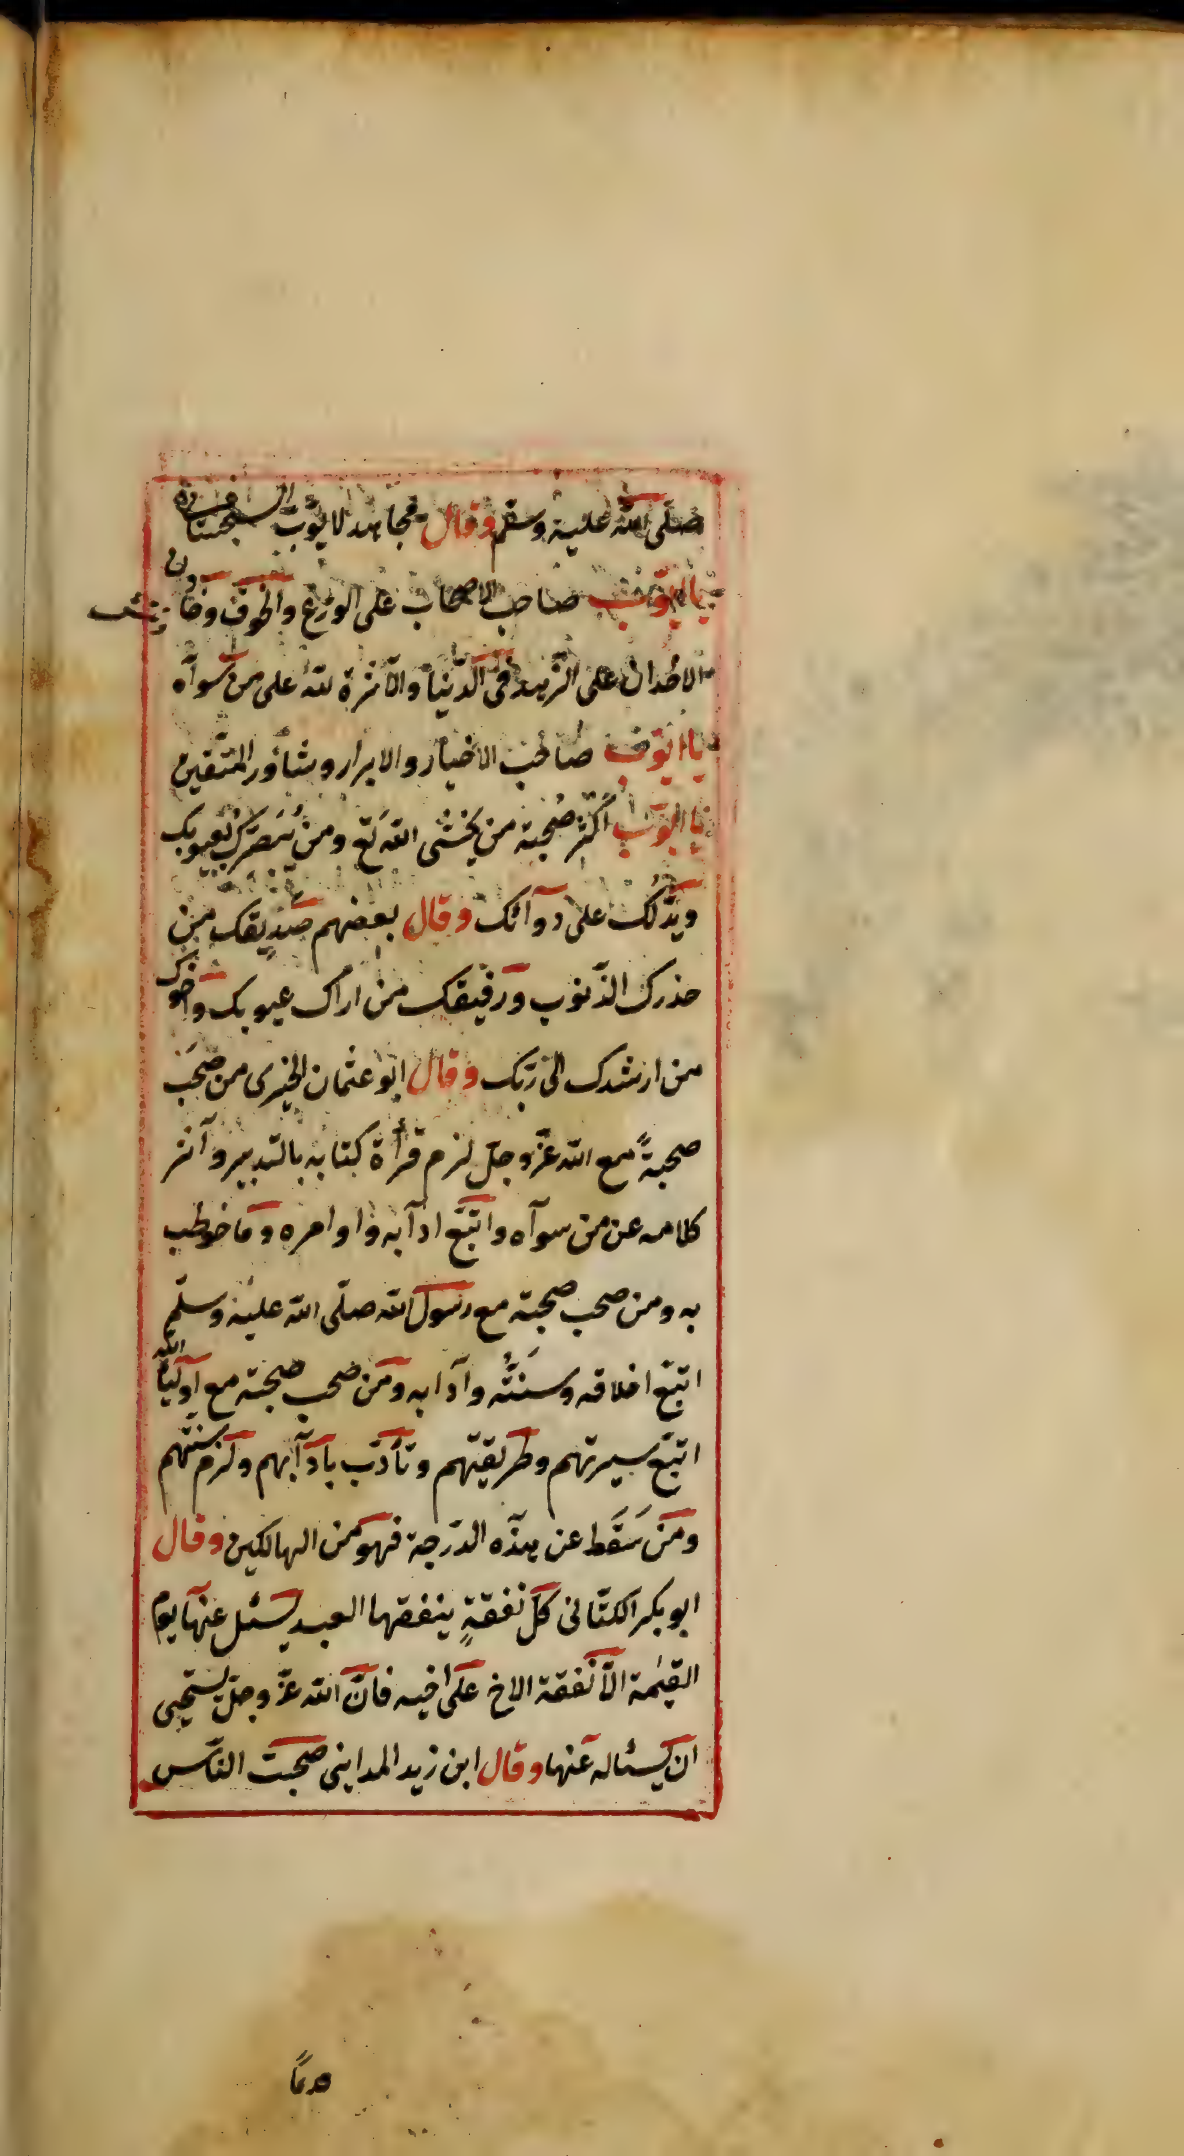 صلّى الله عليه وسلّم وقال مجاهد لايّوب السجستا
يا ايّوب صاحب الاصحاب على الورع والخوف وخادن
الاخدان على الزّهد فى الدّنيا والآثرة لله على من سوآه
يا ايّوب صاحب الاخيار والابرار وشاور المتّقين
يا ايّوب أكثر صحبة من يخشى الله تع ومن يُبَصّرك بعيوبك
ويدّلك على دوآئك وقال بعضهم صديقك من
حذرك الذّنوب ورفيقك من اراك عيوبك واخوك
من ارشدك الى ربّك وقال ابو عثمان الخيرى من صحَب
صحبةً مع الله عزّ وجلّ لزم قرأة كتابه بالتدبير وآثر
كلامه عن من سوآه واتبّع ادآبه واوامره وما خوطب
به ومن صحب صحبته مع رسول الله صلّى الله عليه وسلّم
اتبّع اخلاقه وسنَنَه وآدابه ومن صحب صحبته مع اوليآء الله
اتبّع سيرتهم وطريقتهم وتأدّب بادآبهم ولزم سنّتهم
ومَن سَقَط عن هذه الدّرجة فهو من الهالكين وقال
ابو بكر الكتّانى كلّ نفقةٍ ينفقها العبد يسئل عنها يوم
القيٰمة الّا نفقة الاخ على اخيه فانّ الله عزّ وجلّ يستحيى
ان يسئاله عنها وقال ابن زيد المداينى صحبت النّاس